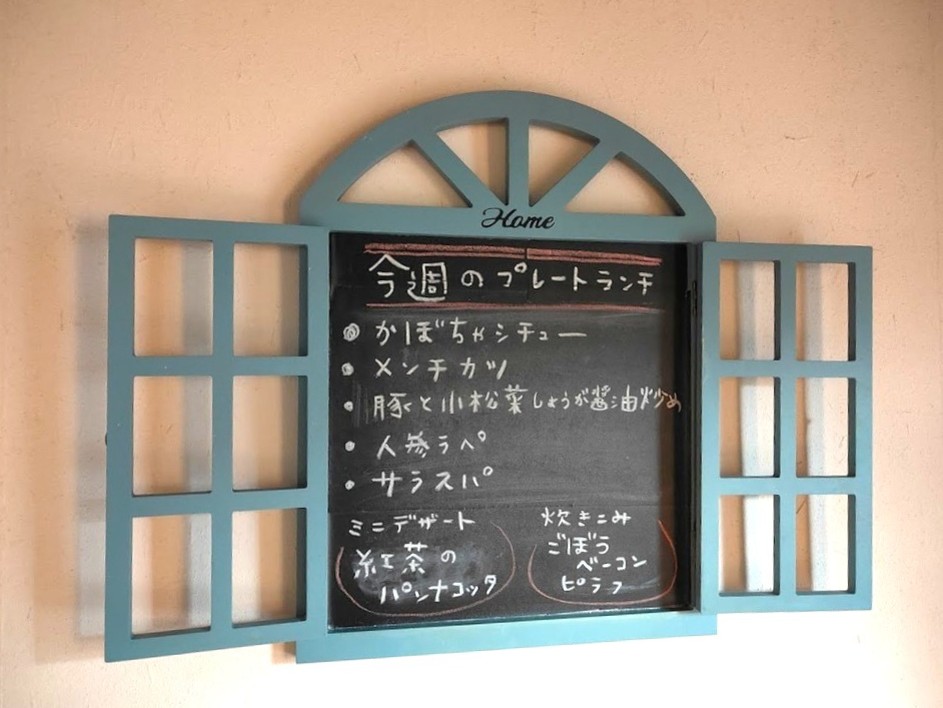 Home
今週のプレートランチ
• かぼちゃシチュー
• メンチカツ
• 豚と小松菜しょうが醤油炒め
• 人参ラペ
• サラスパ
ミニデザート
紅茶の
パンナコッタ
炊きこみ
ごぼう
ベーコン
ピラフ